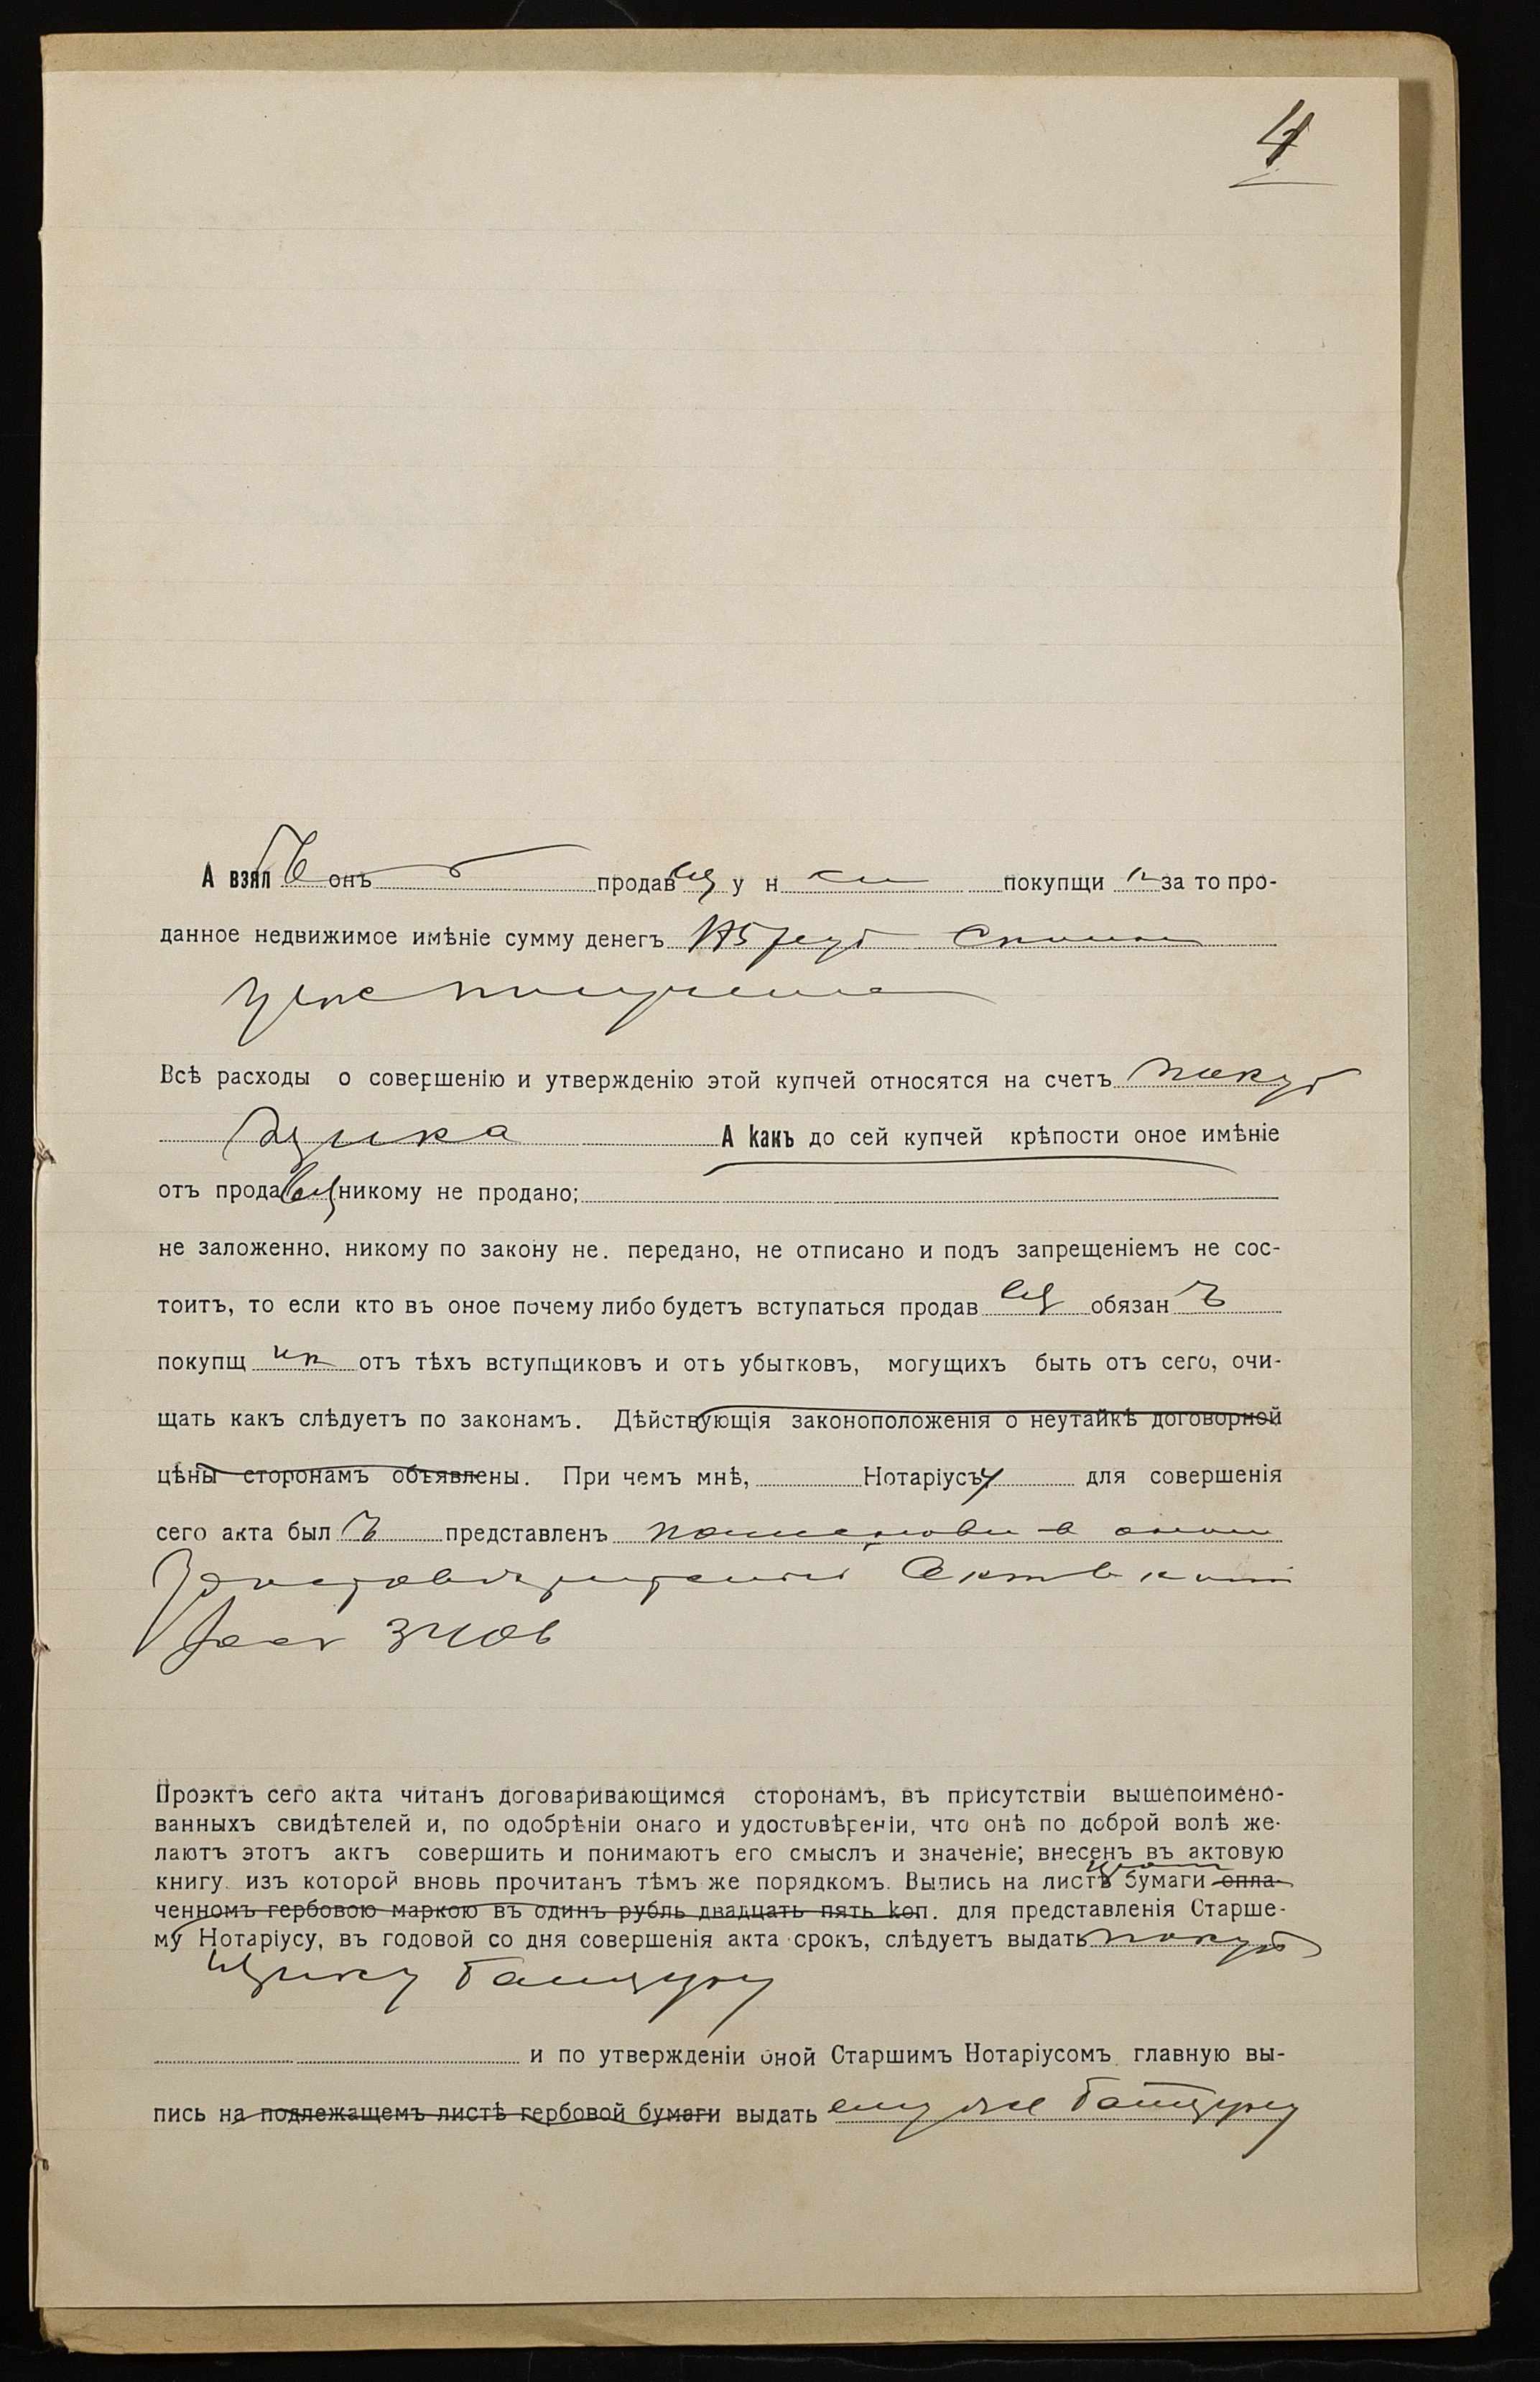 4
А взялъ онъ продавец у н покупщик за то про-
данное недвижимое имѣніе сумму денегъ
Всѣ расходы о совершенію и утвержденію этой купчей относятся на счетъ покуп
щика А какъ до сей купчей крѣпости оное имѣніе
отъ продавец никому не продано;
не заложенно, никому по закону не. передано, не отписано и подъ запрещеніемъ не сос-
тоитъ, то если кто въ оное почему либо будетъ вступаться продавец обязанъ
покупщик отъ тѣхъ вступщиковъ и отъ убытковъ, могущихъ быть отъ сего, очи-
щать какъ слѣдуетъ по законамъ. Дѣйствующія законоположенія о неутайкѣ договорной
цѣны сторонамъ объявлены. При чемъ мнѣ, Нотаріусъу для совершенія
сего акта былъ представленъ
Проэктъ сего акта читанъ договаривающимся сторонамъ, въ присутствіи вышепоимено-
ванныхъ свидѣтелей и, по одобрѣніи онаго и удостовѣреніи, что онѣ по доброй волѣ же-
лаютъ этотъ актъ совершить и понимаютъ его смыслъ и значеніе; внесенъ въ актовую
книгу. изъ которой вновь прочитанъ тѣмъ же порядкомъ. Выпись на листѣ бумаги опла-
ченномъ гербовою маркою въ одинъ рубль двадцать пять коп. для представленія Старше-
му Нотаріусу, въ годовой со дня совершенія акта срокъ, слѣдуетъ выдать покуп
щику
и по утвержденіи оной Старшимъ Нотаріусомъ главную вы-
пись на подлежащемъ листѣ гербовой бумаги выдать ему же